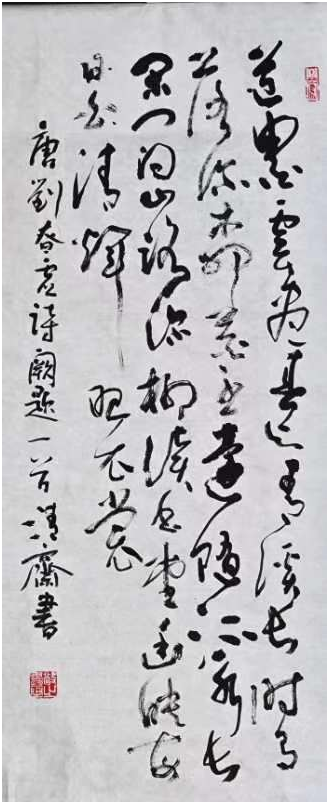 道由白雲盡春與青溪長時有
落花至遠隨流水香
閑門向山路深柳讀書堂幽映每
白日清輝照衣裳
唐劉昚虛詩闕題一首清齋書